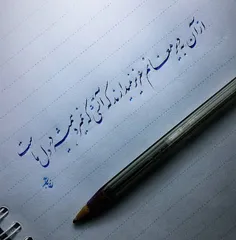 از آن به دیر مغانم عزیز میدارند که آتشی که نمیرد همیشه در دل ماست